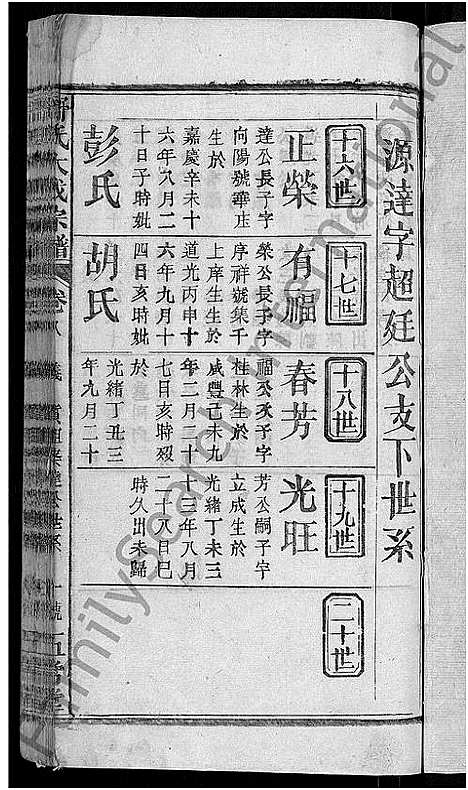 源達字超廷公支下世系
十六世
正榮
達公長子字
向陽號華庄
生於
嘉慶辛未十
六年八月二
十日子時妣
彭氏
十七世
有福
榮公長子字
序祥號集千
上庠生生於
道光丙申十
六年九月十
四日亥時妣
胡氏
十八世
春芳
福公次子字
桂林生於
咸豐己未九
年二月二十
七日亥時歿
於
光緒丁丑三
年九月二十
十九世
光旺
芳公嗣子字
立成生於
光緒丁未三
十三年八月
二十八日巳
時久出未歸
二十世
氏大成宗譜
卷八
FamilySearch International